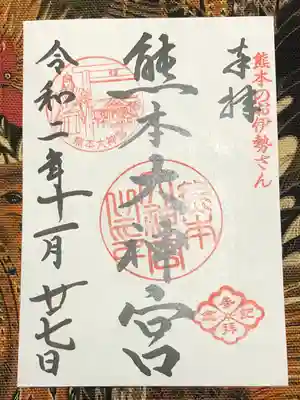 熊本のお伊勢さん
奉拝
熊本大神宮
熊本大神宮
令和二年十一月廿七日
参拝記念